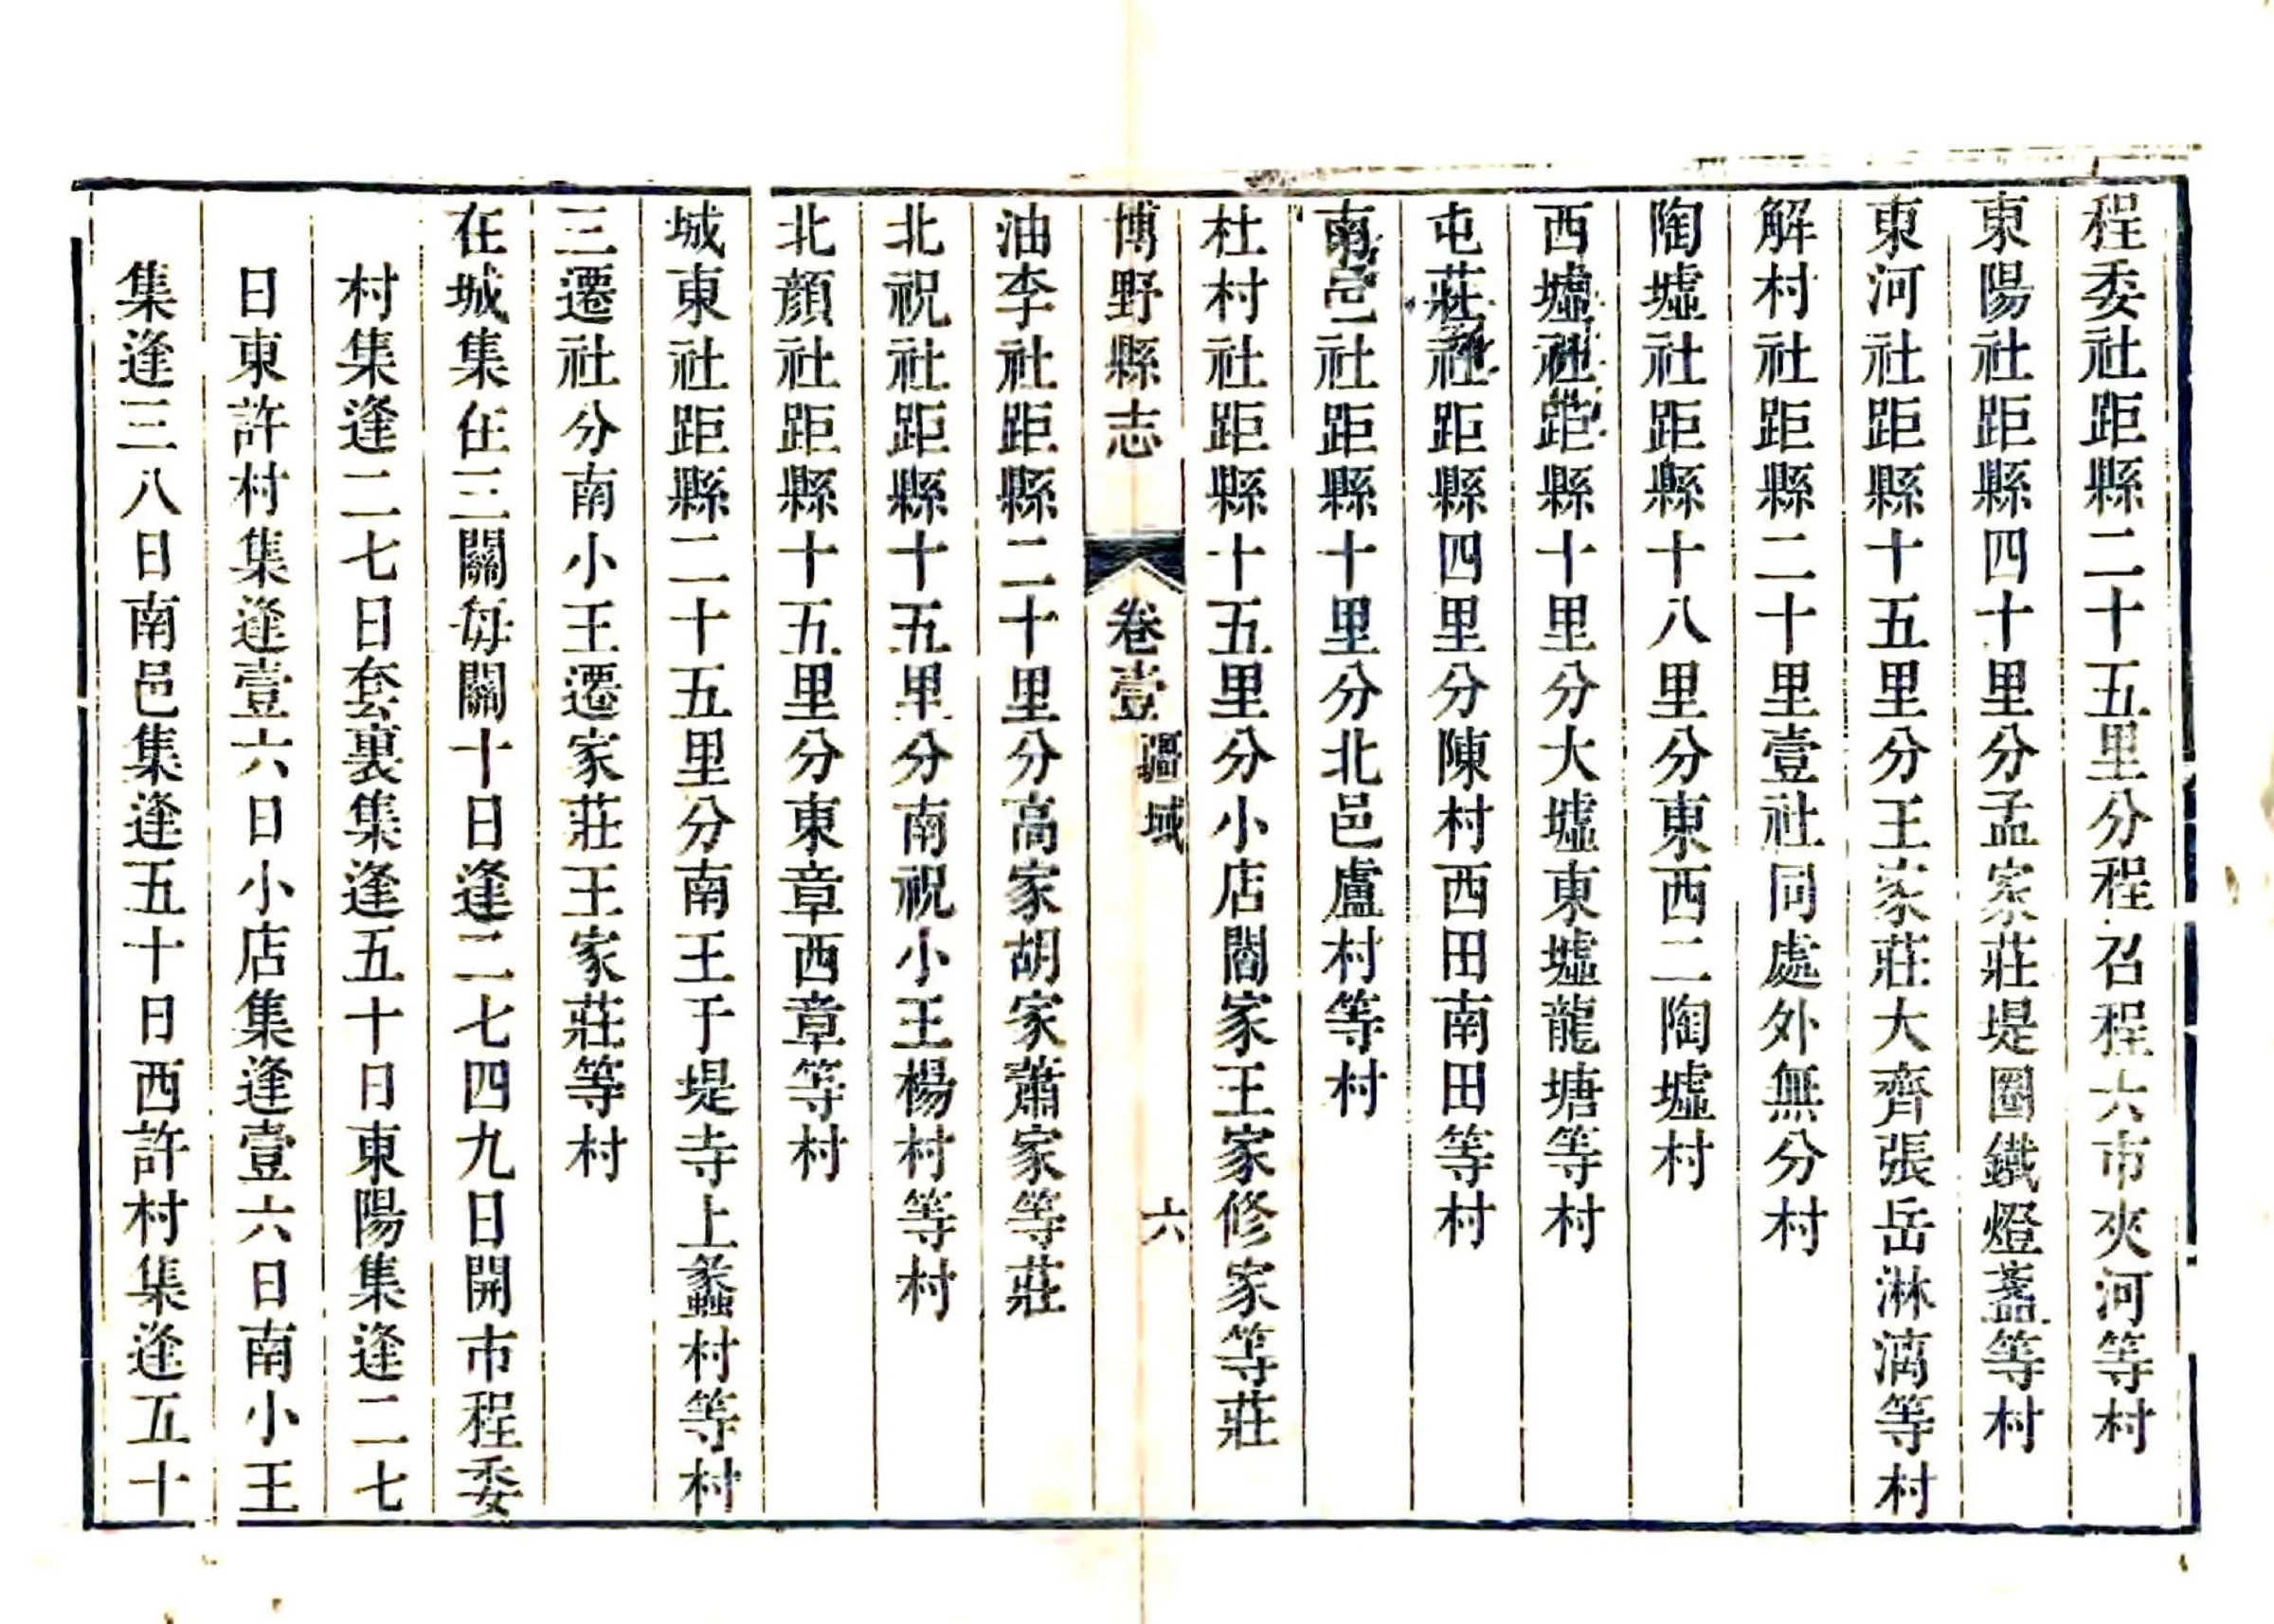 程委社距縣二十五里分程召程六市夾河等村
東陽社距縣四十里分孟家莊堤圈鐵燈盞等村
東河社距縣十五里分王家莊大齊張岳淋漓等村
解村社距縣二十里壹社同處外無分村
陶墟社距縣十八里分東西二陶墟村
西墟社距縣十里分大墟東墟龍塘等村
屯莊社距縣四里分陳村西田南田等村
南邑社距縣十里分北邑盧村等村
杜村社距縣十五里分小店閻家王家修家等莊
博野縣志
卷壹
疆域
六
油李社距縣二十里分高家胡家蕭家等莊
北祝社距縣十五里分南祝小王楊村等村
北顏社距縣十五里分東章西章等村
城東社距縣二十五里分南王于堤寺上蠡村等村
三遷社分南小王遷家莊王家莊等村
在城集在三關每關十日逢二七四九日開市程委
村集逢二七日套裏集逢五十日東陽集逢二七
日東許村集逢壹六日小店集逢壹六日南小王
集逢三八日南邑集逢五十日西許村集逢五十